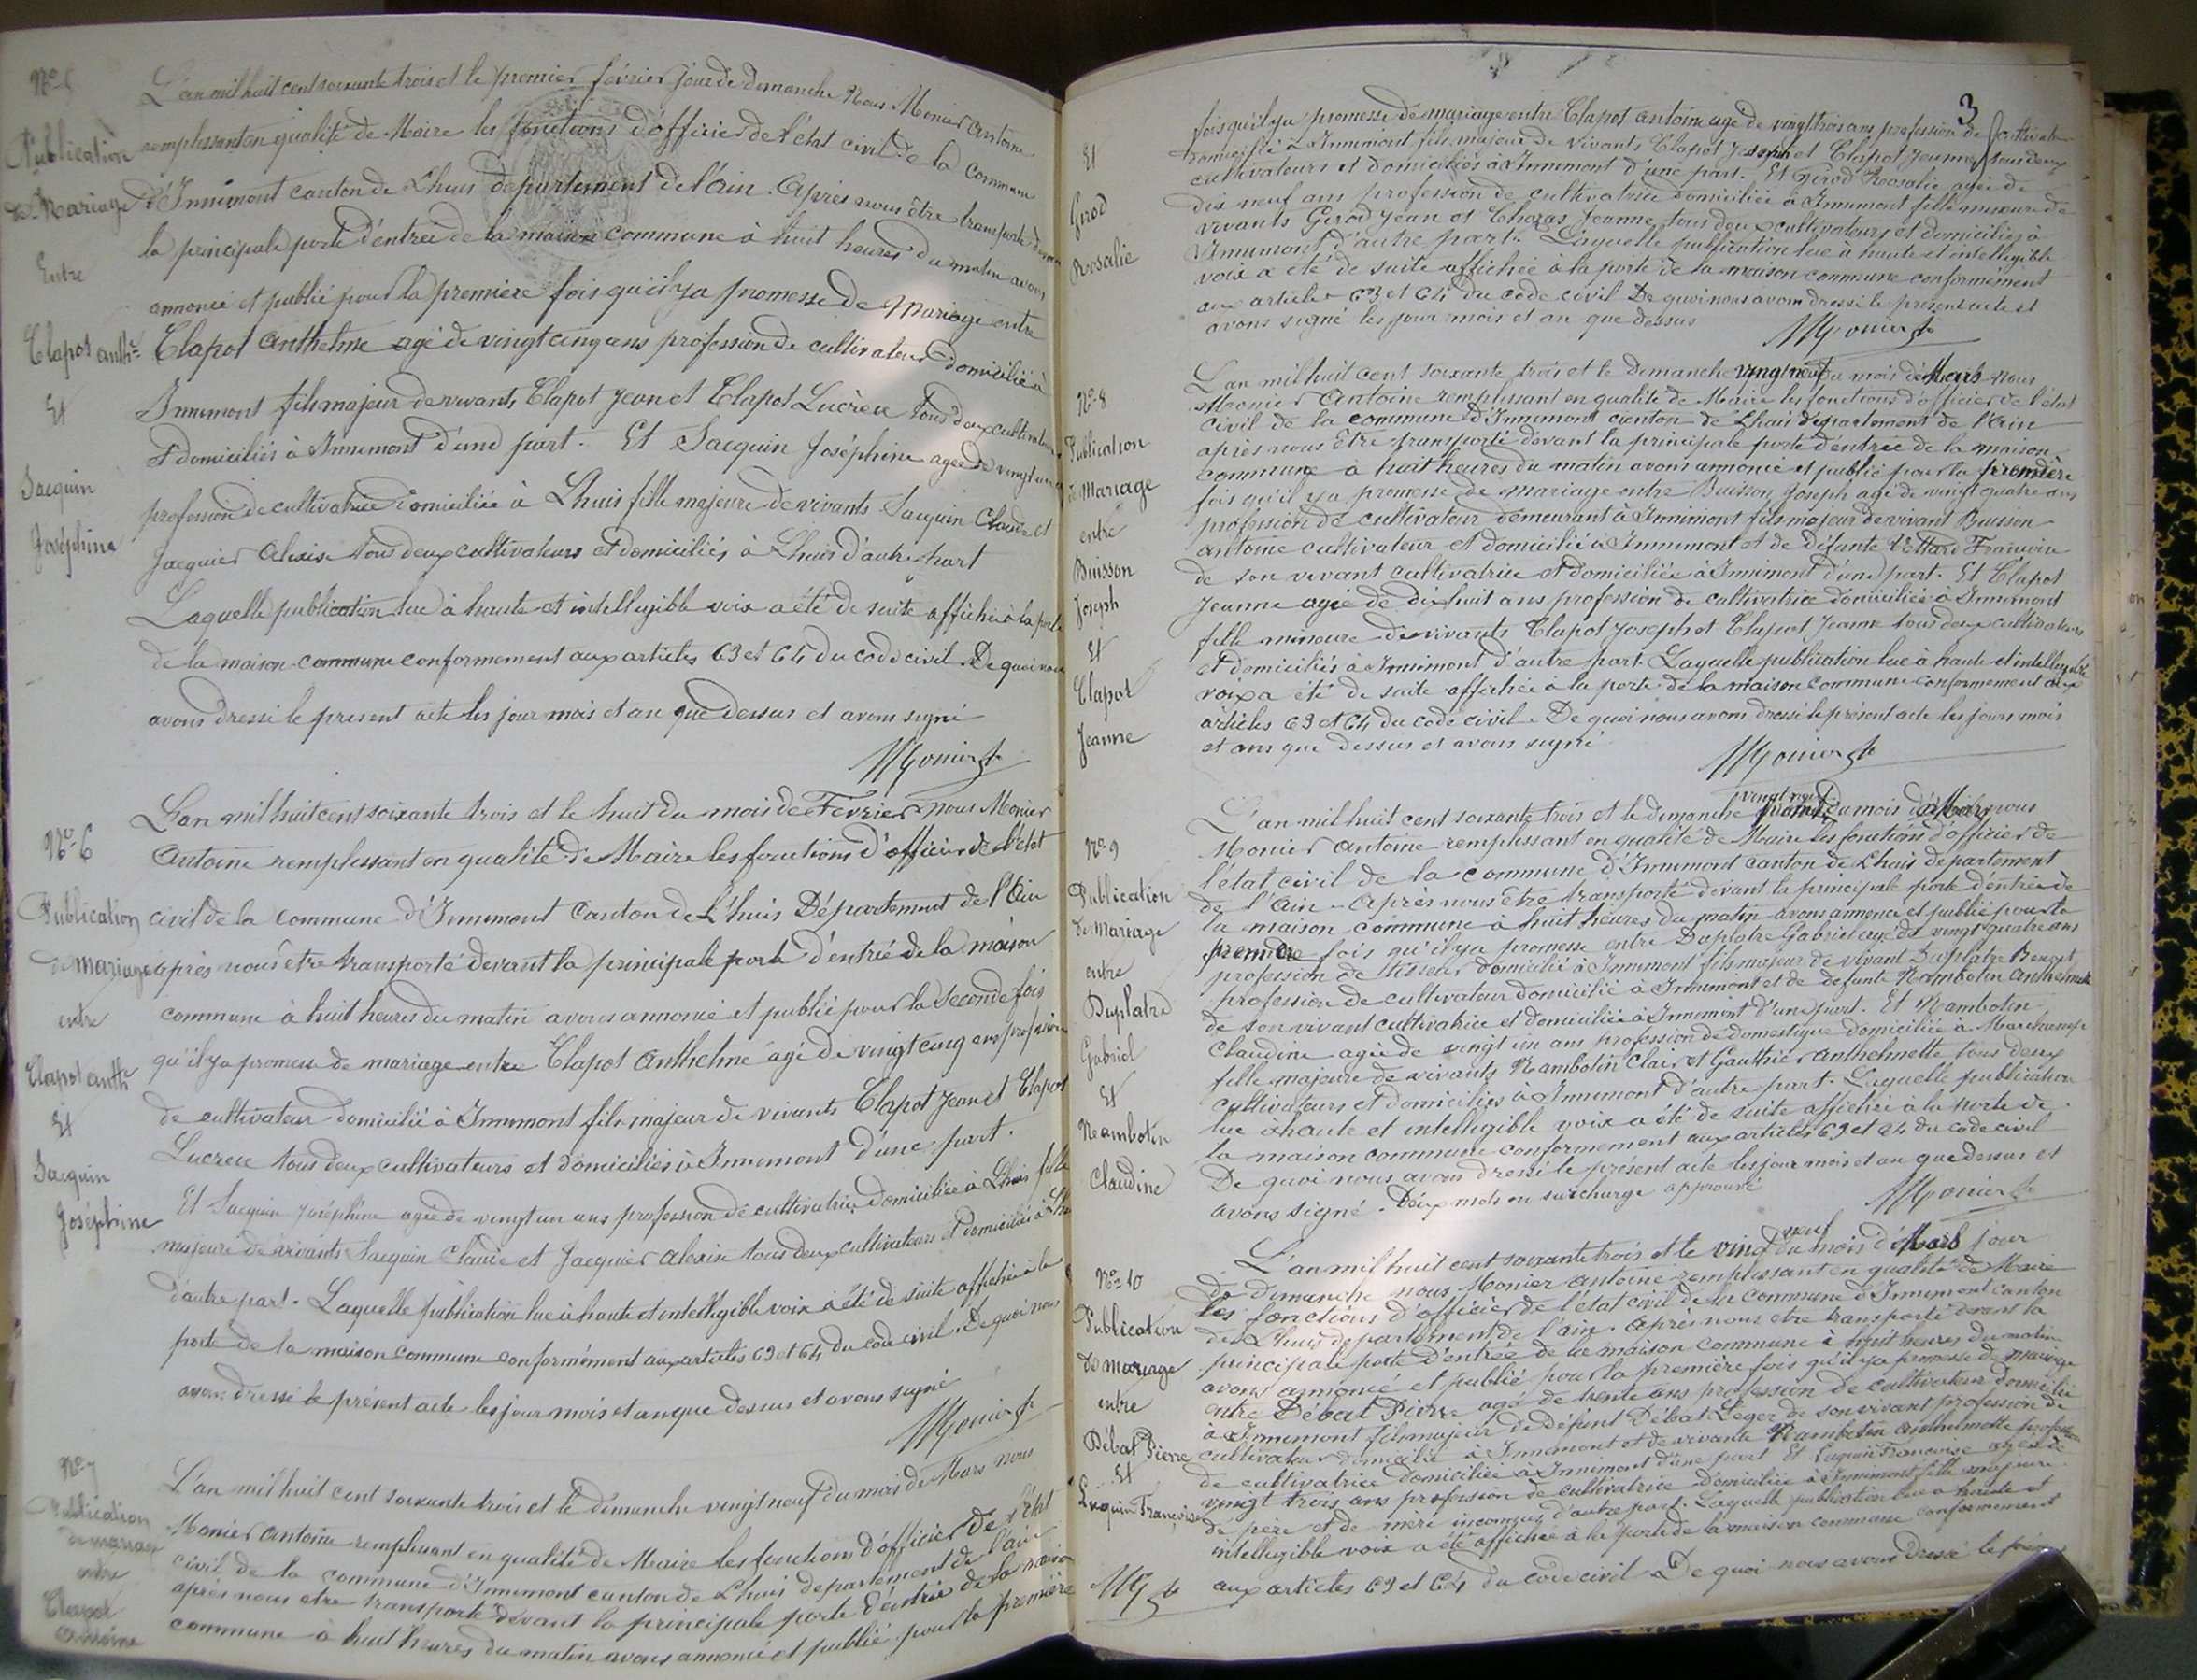 No 5
Publication
de Mariage
Entre
Clapot anth.e
Et
Jacquin
Joséphine
L'an mil huit cent soixante trois et le premier février jour de dimanche Nous Monier Antoine
remplissant en qualité de Maire les fonctions d'officier de l'état civil de la Commune
d'Innimont canton de Lhuis département de l'ain. Après nous être transporté devant
la principale porte d'entrée de la maison commune à huit heures du matin avons
annoncé et publié pour la première fois qu'il y a promesse de Mariage entre
Clapot Anthelme agé de vingt cinq ans profession de cultivateur domicilié à
Innimont fils majeur de vivants Clapot Jean et Clapot Lucrèce tous deux cultivateurs
et domiciliés à Innimont d'une part. Et Jacquin Joséphine agée de vingt un ans
profession de cultivatrice domiciliée à Lhuis fille majeure de vivants Jacquin Claude et
Jacquier Alexise tous deux cultivateurs et domiciliés à Lhuis d'autre part
Laquelle publication lue à haute et intelligible voix a été de suite affichée à la porte
de la maison commune conformement aux articles 63 et 64 du code civil. De quoi nous
avons dressé le present acte les jour mois et an que dessus et avons signé
Monier
No 6
Publication
de mariage
entre
Clapot anth.
Et
Jacquin
Joséphine
L'an mil huit cent soixante trois et le huit du mois de Fevrier nous Monier
Antoine remplissant en qualité de Maire les fonctions d'officier de l'état
civil de la commune d'Innimont Canton de L'huis Département de l'Ain
après nous être transporté devant la principale porte d'entrée de la maison
commune à huit heures du matin avons annoncé et publié pour la seconde fois
qu'il y a promesse de mariage entre Clapot Anthelme agé de vingt cinq ans profession
de cultivateur domicilié à Innimont fils majeur de vivants Clapot Jean et Clapot
Lucrece tous deux cultivateurs et domiciliés à Innimont d'une part.
Et Jacquin Joséphine agée de vingt un ans profession de cultivatrice domiciliée à Lhuis fille
majeure de vivants Jacquin Claude et Jacquier alexise tous deux cultivateurs et domiciliés à Lhuis
d'autre part. Laquelle publication lue à haute et intelligible voix a été de suite affichée à la
porte de la maison commune conformément aux articles 63 et 64 du code civil. De quoi nous
avons dressé le présent acte les jour mois et an que dessus et avons signé
Monier
No 7
Publication
de mariage
entre
Clapot
Antoine
L'an mil huit cent soixante trois et le dimanche vingt neuf du mois de Mars nous
Monier Antoine remplissant en qualité de Maire les fonctions d'officier de l'état
civil de la commune d'Innimont canton de Lhuis departement de l'ain
après nous être transporté devant la principale porte d'entrée de la maison
commune à huit heures du matin avons annoncé et publié pour la première
3
Et
Girod
Rosalie
fois qu'il y a promesse de mariage entre Clapot antoine agé de vingt trois ans profession de cultivateur
domicilié à Innimont fils majeur de vivants Clapot Joseph et Clapot Jeanne tous deux
cultivateurs et domiciliés à Innimont d'une part. Et Girod Rosalie agée de
dix neuf ans profession de cultivatrice domiciliée à Innimont fille mineure de
vivants Girod Jean et Jeanne tous deux cultivateurs et domiciliés à
Innimont d'autre part. Laquelle publication lue à haute et intelligible
voix a été de suite affichée à la porte de la maison commune conformément
aux articles 63 et 64 du code civil De quoi nous avons dressé le présent acte et
avons signé les jour mois et an que dessus
Monier
No 8
Publication
de Mariage
entre
Buisson
Joseph
Et
Clapot
Jeanne
L'an mil huit cent soixante trois et le Dimanche vingt neuf du mois de Mars nous
Monier Antoine remplissant en qualité de Maire les fonctions d'officier de l'état
civil de la commune d'Innimont canton de Lhuis département de l'Ain
après nous être transporté devant la principale porte d'entrée de la maison
commune à huit heures du matin avons annoncé et publié pour la première
fois qu'il y a promesse de mariage entre Buisson Joseph agé de vingt quatre ans
profession de cultivateur demeurant à Innimont fils majeur de vivant Buisson
antoine cultivateur et domicilié à Innimont et de défunte Vettard Françoise
de son vivant cultivatrice et domiciliée à Innimont d'une part. Et Clapot
Jeanne agée de dix huit ans profession de cultivatrice domiciliée à Innimont
fille mineure de vivants Clapot Joseph et Clapot Jeanne tous deux cultivateurs
et domiciliés à Innimont d'autre part. Laquelle publication lue à haute et intelligible
voix a été de suite affichée à la porte de la maison commune conformement aux
articles 63 et 64 du code civil. De quoi nous avons dressé le présent acte les jours mois
et ans que dessus et avons signé
Monier
No 9
Publication
de Mariage
entre
Duplatre
Gabriel
Et
Rambotin
Claudine
L'an mil huit cent soixante trois et le dimanche vingt neuf du mois de Mars nous
Monier Antoine remplissant en qualité de Maire les fonctions d'officier de
l'état civil de la commune d'Innimont canton de Lhuis departement
de l'Ain - Après nous être transporté devant la principale porte d'entrée de
la maison commune à huit heures du matin avons annoncé et publié pour la
première fois qu'il y a promesse entre Duplatre Gabriel agé de vingt quatre ans
profession de tisseur domicilié à Innimont fils majeur de vivant Duplatre Benoit
profession de cultivateur domicilié à Innimont et de defunte Rambotin Anthelmette
de son vivant cultivatrice et domiciliée à Innimont d'une part. Et Rambotin
Claudine agée de vingt un ans profession de domestique domiciliée à Marchamp
fille majeure de vivants Rambotin Clair et Gauthier Anthelmette tous deux
cultivateurs et domiciliés à Innimont d'autre part. Laquelle publication
lue à haute et intelligible voix a été de suite affichée à la porte de
la maison commune conformement aux articles 63 et 64 du code civil
De quoi nous avons dressé le présent acte les jour mois et an que dessus et
avons signé. Deux mots en surcharge approuvé
Monier
No 10
Publication
de mariage
entre
Débat Pierre
Et
Luquin Françoise
L'an mil huit cent soixante trois et le vingt neuf du mois de Mars jour
de dimanche nous Monier Antoine remplissant en qualité de Maire
les fonctions d'officier de l'état civil de la commune d'Innimont canton
de Lhuis departement de l'ain. Après nous être transporté devant la
principale porte d'entrée de la maison commune à huit heures du matin
avons annoncé et publié pour la première fois qu'il y a promesse de mariage
entre Débat Pierre agé de trente ans profession de cultivateur domicilié
à Innimont fils majeur de Défunt Débat Léger de son vivant profession de
cultivateur domicilié à Innimont et de vivante Rambotin Anthelmette profession
de cultivatrice domiciliée à Innimont d'une part Et Luquin Françoise agée de
vingt trois ans profession de cultivatrice domiciliée à Innimont fille majeure
de père et de mère inconnus d'autre part. Laquelle publication lue à haute et
intelligible voix a été affichée à la porte de la maison commune conformement
aux articles 63 et 64 du code civil De quoi nous avons dressé le présent